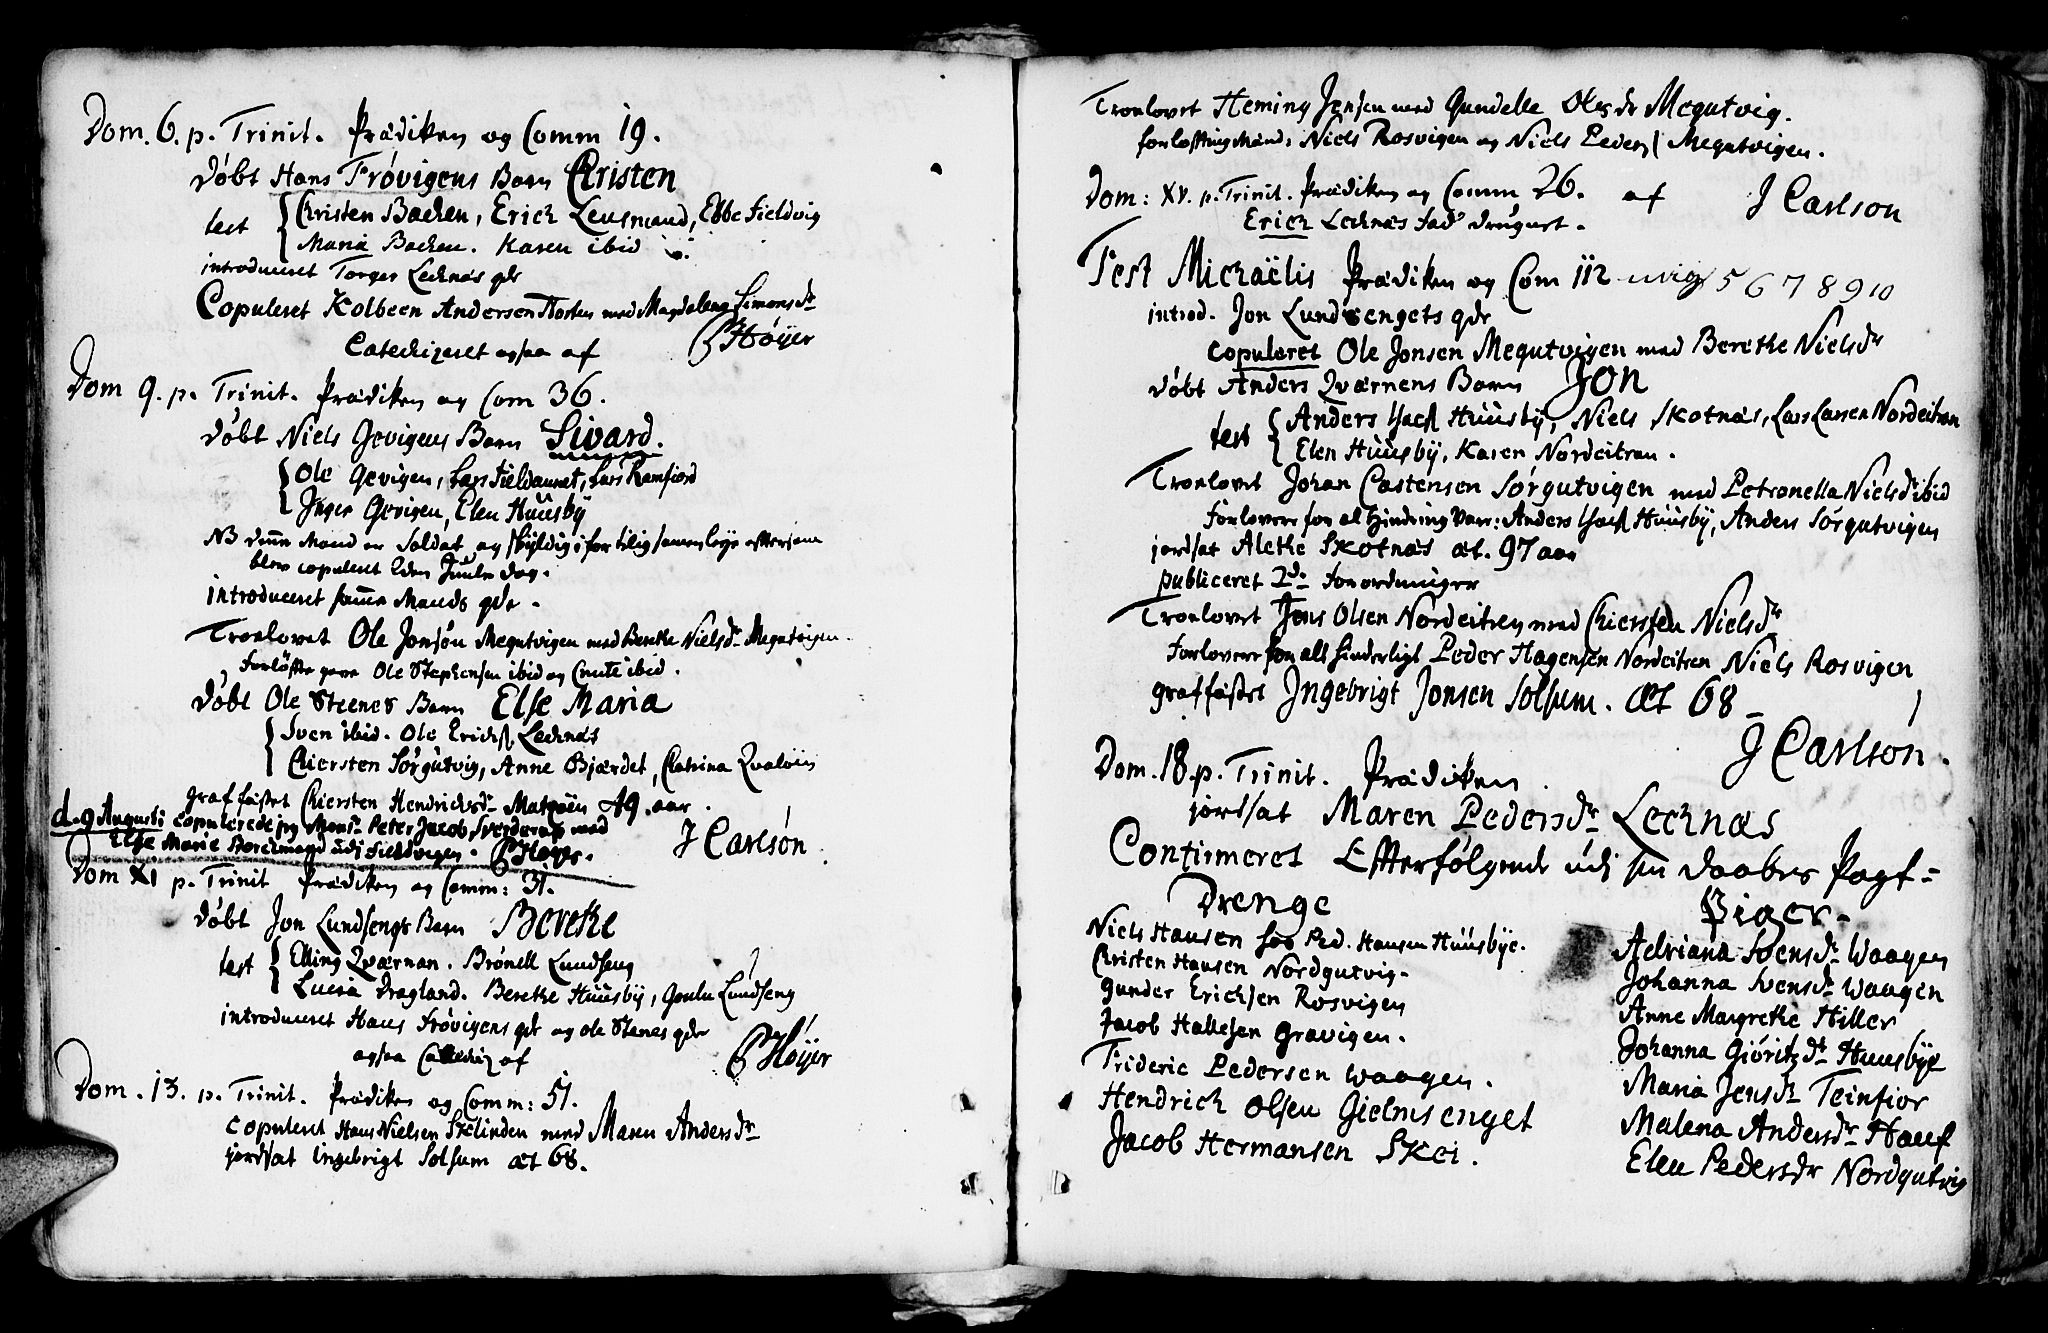 Dom. 6. p. Trinit. Prædiken og Comm 19.
døbt Hans Frøvigens Barn Christen
test Christen Backen, Erich Lensmand, Ebbe Fieldvig
Maria Backen. Karen ibid
introduceret Torger Lecknæs qdr
Copuleret Kolbeen Andersen Horten med Magdalena Simonsdr
Catechizeret ogsaa af CHøyer
Dom 9. p. Trinit. Prædiken og Com 36.
døbt Niels Gevigens Barn Sivard.
Ole Gevigen, Lars Fieldauret, Lars Ramfiord
Inger Gevigen, Elen Huusby
NB denne Mand er Soldat og skyldig i for tilig samenleye eftersom
blev copuleret 2den Juule dag.
introduceret samme Mands qdr.
Troelovet Ole Jonsøn Megutvigen med Berethe Nielsdr Megutvigen.
Forløfte gave Ole Stephensen ibid og Cnute ibid.
døbt Ole Steenes Barn Else Maria
Sven ibid. Ole Erichs. Lecknæs
Chiersten Sørgutvig, Anne Bjærdet, Chatrina Qvaløen
graffæstet Chiersten Hendrichsdr Matzøen 49. aar.
d. 9 Augusti copulerede jeg Monsr Peter Jacob Sverdrup med
Else Marie Borchmand udi Fieldvigen. CHøyer.
J Carlsøn
Dom XI p. Trinit Prædiken og Comm: 31.
døbt Jon Lundsengs Barn Berethe
test Elling Qværnan. Brønell Lundseng
Lucia Dragland. Berethe Huusby, Goulu Lundseng
introduceret Hans Frøvigens qdr og Ole Stenes qdr
ogsaa Catechiz af CHøyer
Dom. 13. p. Trinit. Prædiken og Comm: 51.
copuleret Hans Nielsen Skelinden med Maren Andersdr
jordsat Ingebrigt Solsum æt 68.
Troelovet Heming Jensen med Gundelle Olesdr Megutvig.
forløftningsMænd, Niels Rosvigen og Niels Peders. Megutvigen.
Dom: XV. p. Trinit. Prædiken og Comm 26. af J Carlson
Erich Lecknæs Fad
Fest Michaëlis Prædiken og Com 112 5 6 7 8 9 10
introd. Jon Lundsengets qdr
copuleret Ole Jonsen Megutvigen med Berethe Nielsdr
døbt Anders Qværnens Barn Jon
test Anders Jacs. Huusby, Niels Skotnæs, Lars Larsen Nordeitran
Elen Huusby, Karen Nordeitran.
Troelovet Johan Castensen Sørgutvigen med Petronella Nielsdr ibid
Forlovere for al hindring Vare: Anders Jacs. Huusby, Anders Sørgutvigen
jordsat Alethe Skotnæs æt. 97 aar
publiceret 2de Forordninger
Troelovet Jens Olsen Nordeitren med Chiersten Nielsdr
Forlovere for alt hinderligt Peder Hagensen Nordeitren Niels Rosvigen
graffæstet Ingebrigt Jonsen Solsum. Æt 68
J Carlson.
Dom. 18. p. Trinit. Prædiken
jordsat Maren Pedersdr Lecknæs
Confirmeret Efterfølgende udi sin daabes Pagt=
Drenge
Niels Hansen hos Ped. Hansen Huusbye.
Christen Hansen Nordgutvig.
Gunder Erichsen Rosvigen
Jacob Hallesen Gravigen.
Frideric Pedersen Waagen.
Hendrich Olsen Gielmsenget
Jacob Hermansen Skei.
Piger.
Adriana Svensdr Waagen
Johanna Svensdr Waagen
Anne Margrethe Hiller
Johanna Giøritzdr Huusbye
Maria Jensdr Teinfior
Malena Andersdr Hauf
Elen Pedersdr Nordgutvig